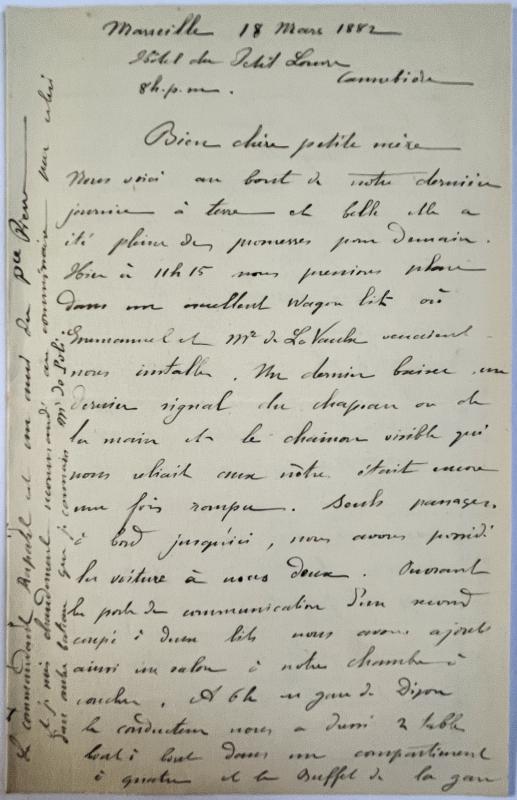 Marseille 18 Mars 1882
Hôtel du Petit Louvre
Cannebière
8h. p. m.
Bien chère petite mère
Nous voici au bout de notre dernière
journée à terre et belle elle a
été pleine de promesses pour demain.
Hier à 11h 15 nous prenions place
dans un excellent wagon lits où
Emmanuel et Mr de La Vaulx venaient
nous installer. Un dernier baiser, un
dernier signal du chapeau ou de
la main et le chainon visible qui
nous reliait aux nôtres était encore
une fois rompu. Seuls passagers
à bord jusqu'ici, nous avons possédé
la voiture à nous deux. Ouvrant
la porte de communication d'un second
coupé à deux lits nous avons ajouté
ainsi un salon à notre chambre à
coucher. A 6h en gare de Dijon
le conducteur nous a dressé 2 table
bout à bout dans un compartiment
à quatre et le Buffet de la gare
Le commandant est un ami du pce Pierre
et je suis chaudement recommandé au commissaire par celui
d'un autre bateau que je connais Mr de Poli.